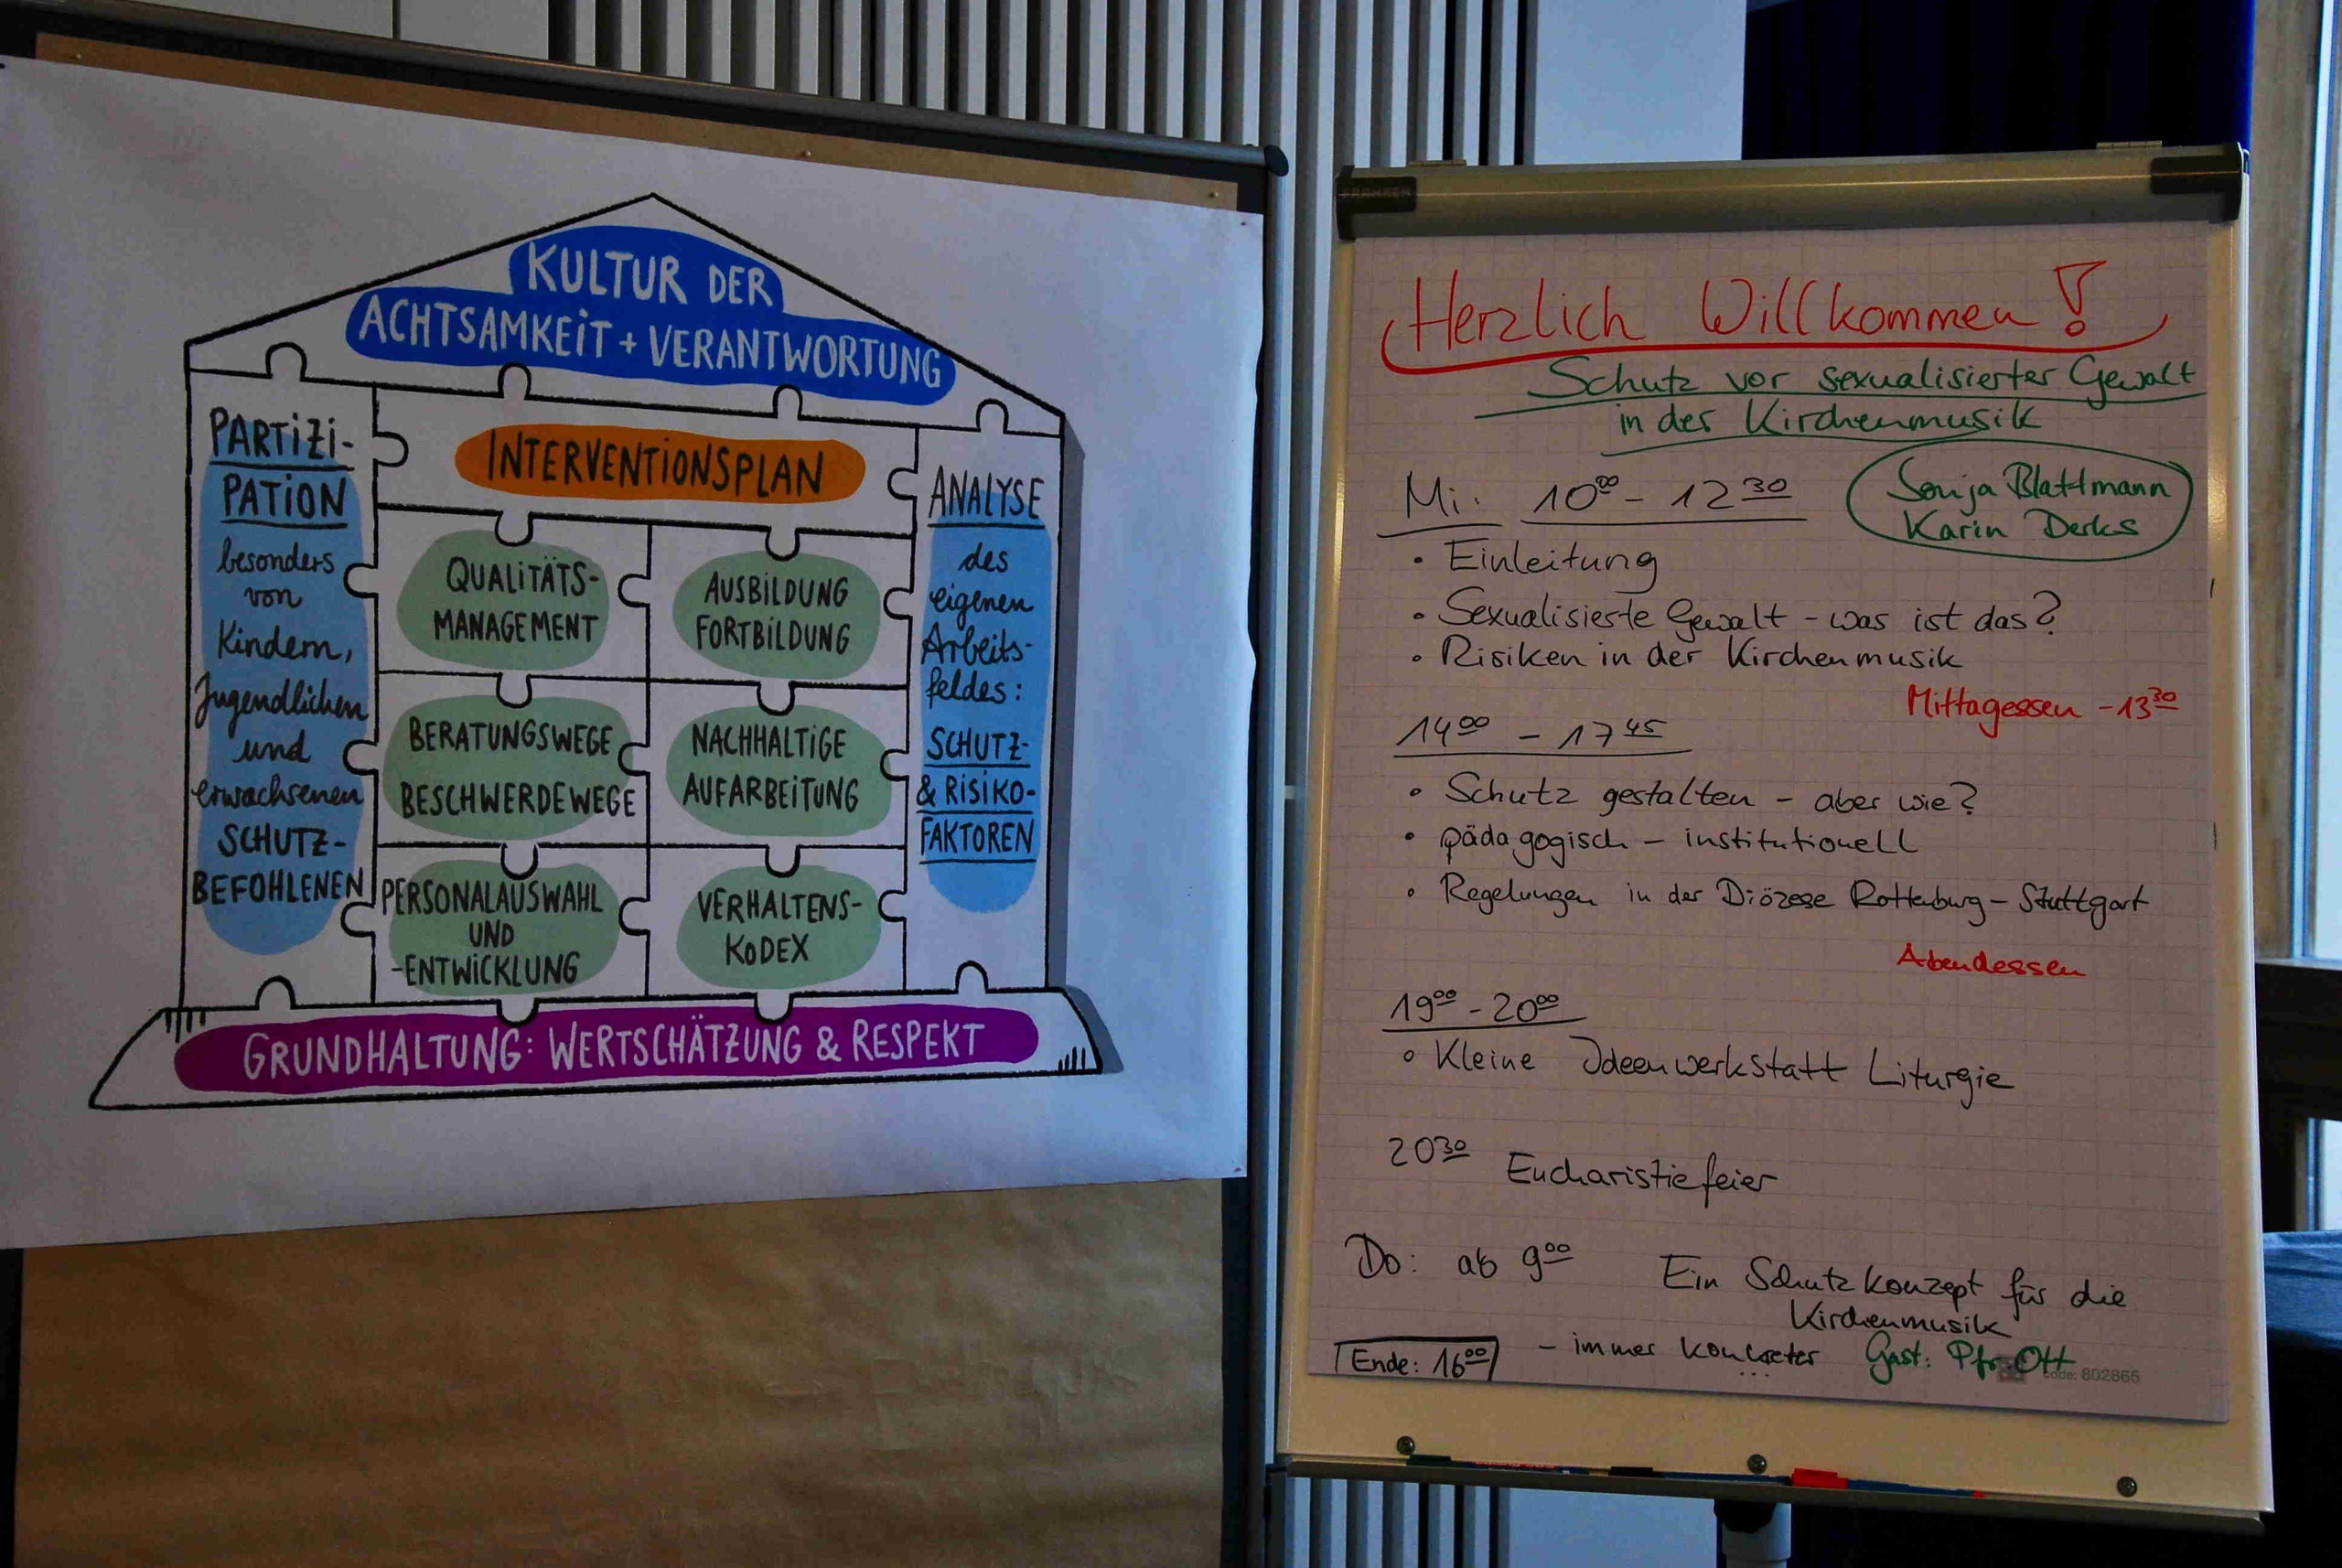 KULTUR DER
ACHTSAMKEIT + VERANTWORTUNG
PARTIZI-
PATION
besonders
von
Kindern,
Jugendlichen
und
erwachsenen
SCHUTZ-
BEFOHLENEN
INTERVENTIONSPLAN
QUALITÄTS-
MANAGEMENT
AUSBILDUNG
FORTBILDUNG
BERATUNGSWEGE
BESCHWERDEWEGE
NACHHALTIGE
AUFARBEITUNG
PERSONALAUSWAHL
UND
-ENTWICKLUNG
VERHALTENS-
KODEX
ANALYSE
des
eigenen
Arbeits-
feldes:
SCHUTZ-
& RISIKO-
FAKTOREN
GRUNDHALTUNG: WERTSCHÄTZUNG & RESPEKT
FRANKEN
Herzlich Willkommen!
Schutz vor sexualisierter Gewalt
in der Kirchenmusik
Mi: 10⁰⁰ - 12³⁰
Sonja Blattmann
Karin Derks
• Einleitung
• Sexualisierte Gewalt - was ist das?
• Risiken in der Kirchenmusik
Mittagessen - 13³⁰
14⁰⁰ - 17⁴⁵
• Schutz gestalten - aber wie?
• pädagogisch - institutionell
• Regelungen in der Diözese Rottenburg - Stuttgart
Abendessen
19⁰⁰ - 20⁰⁰
• Kleine Ideenwerkstatt Liturgie
20³⁰ Eucharistiefeier
Do: ab 9⁰⁰ Ein Schutzkonzept für die
Kirchenmusik
- immer konkreter ...
Gast: Pfr. Ott
Ende: 16⁰⁰
code: 802865